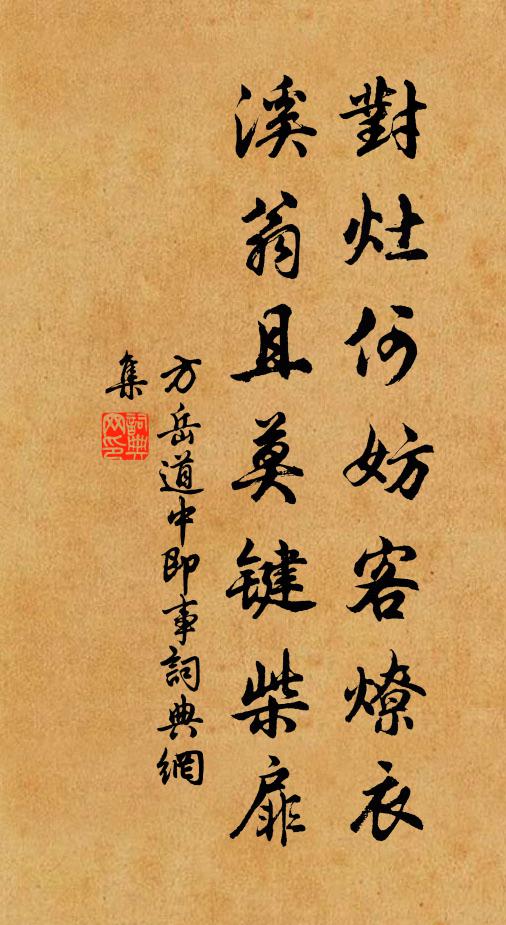 對灶何妨客燎衣
溪翁且莫键柴扉
方岳道中即事詞典網
集
詞典
网印